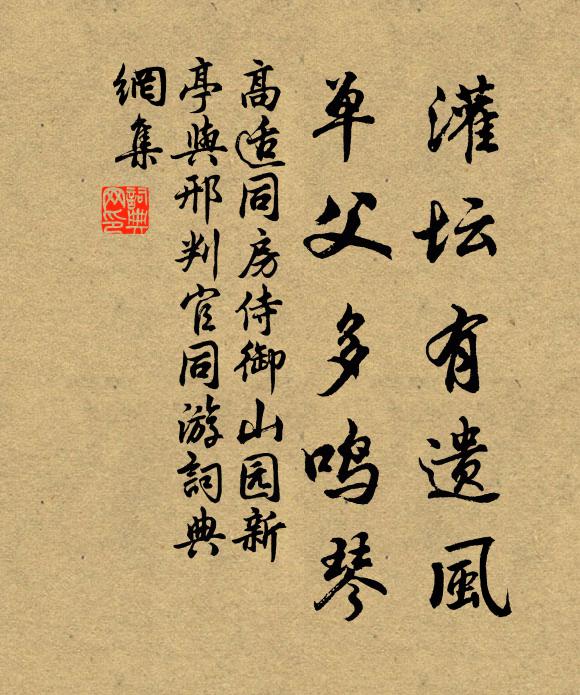 灌坛有遗風
单父多鸣琴
高适同房侍御山园新
亭與邢判官同游詞典
網集
詞典
网印